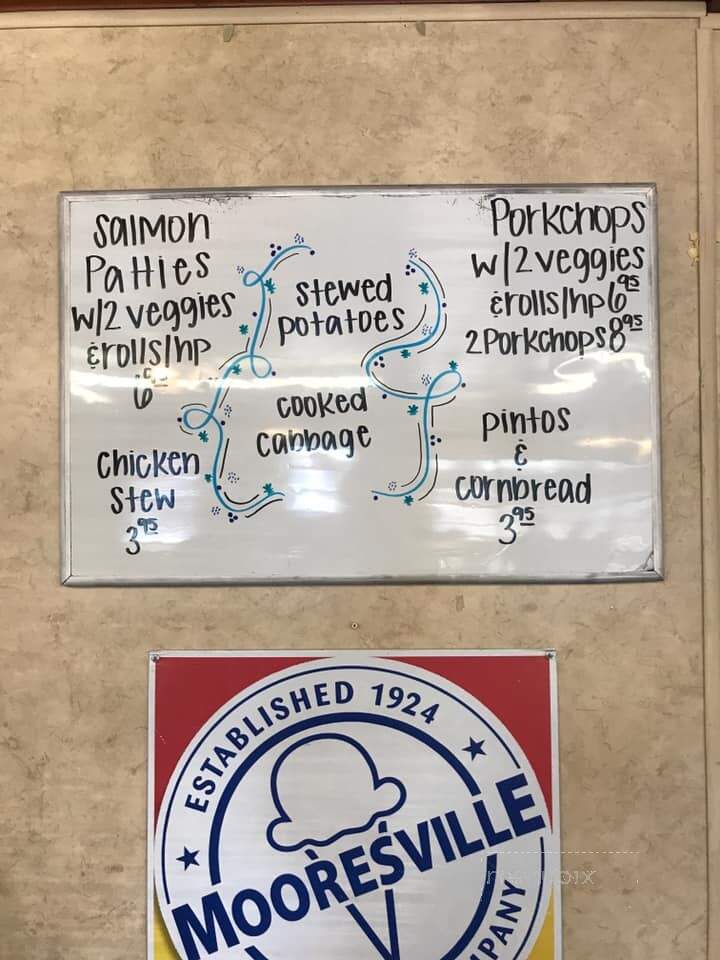 Salmon
Patties
w/2 veggies
& rolls/hp
6
Chicken
Stew
3 95
Stewed
potatoes
cooked
cabbage
Porkchops
w/2 veggies
& rolls/hp 6 95
2 Porkchops 8 95
pintos
&
cornbread
3 95
ESTABLISHED 1924
MOORESVILLE